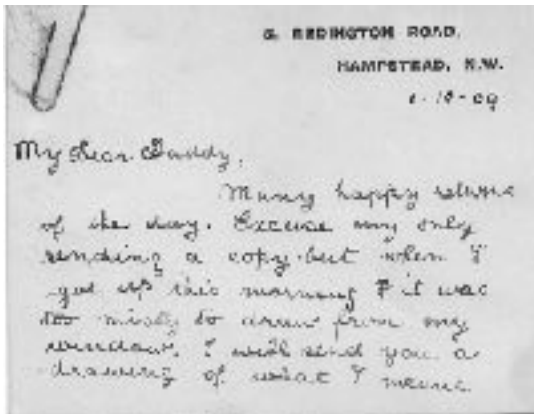 5. REDINGTON ROAD,
HAMPSTEAD, N.W.
My dear Daddy,
Many happy returns
of the day. Excuse my only
sending a copy but when I
got up this morning it was
too misty to draw from my
window. I will send you a
drawing of what I mean